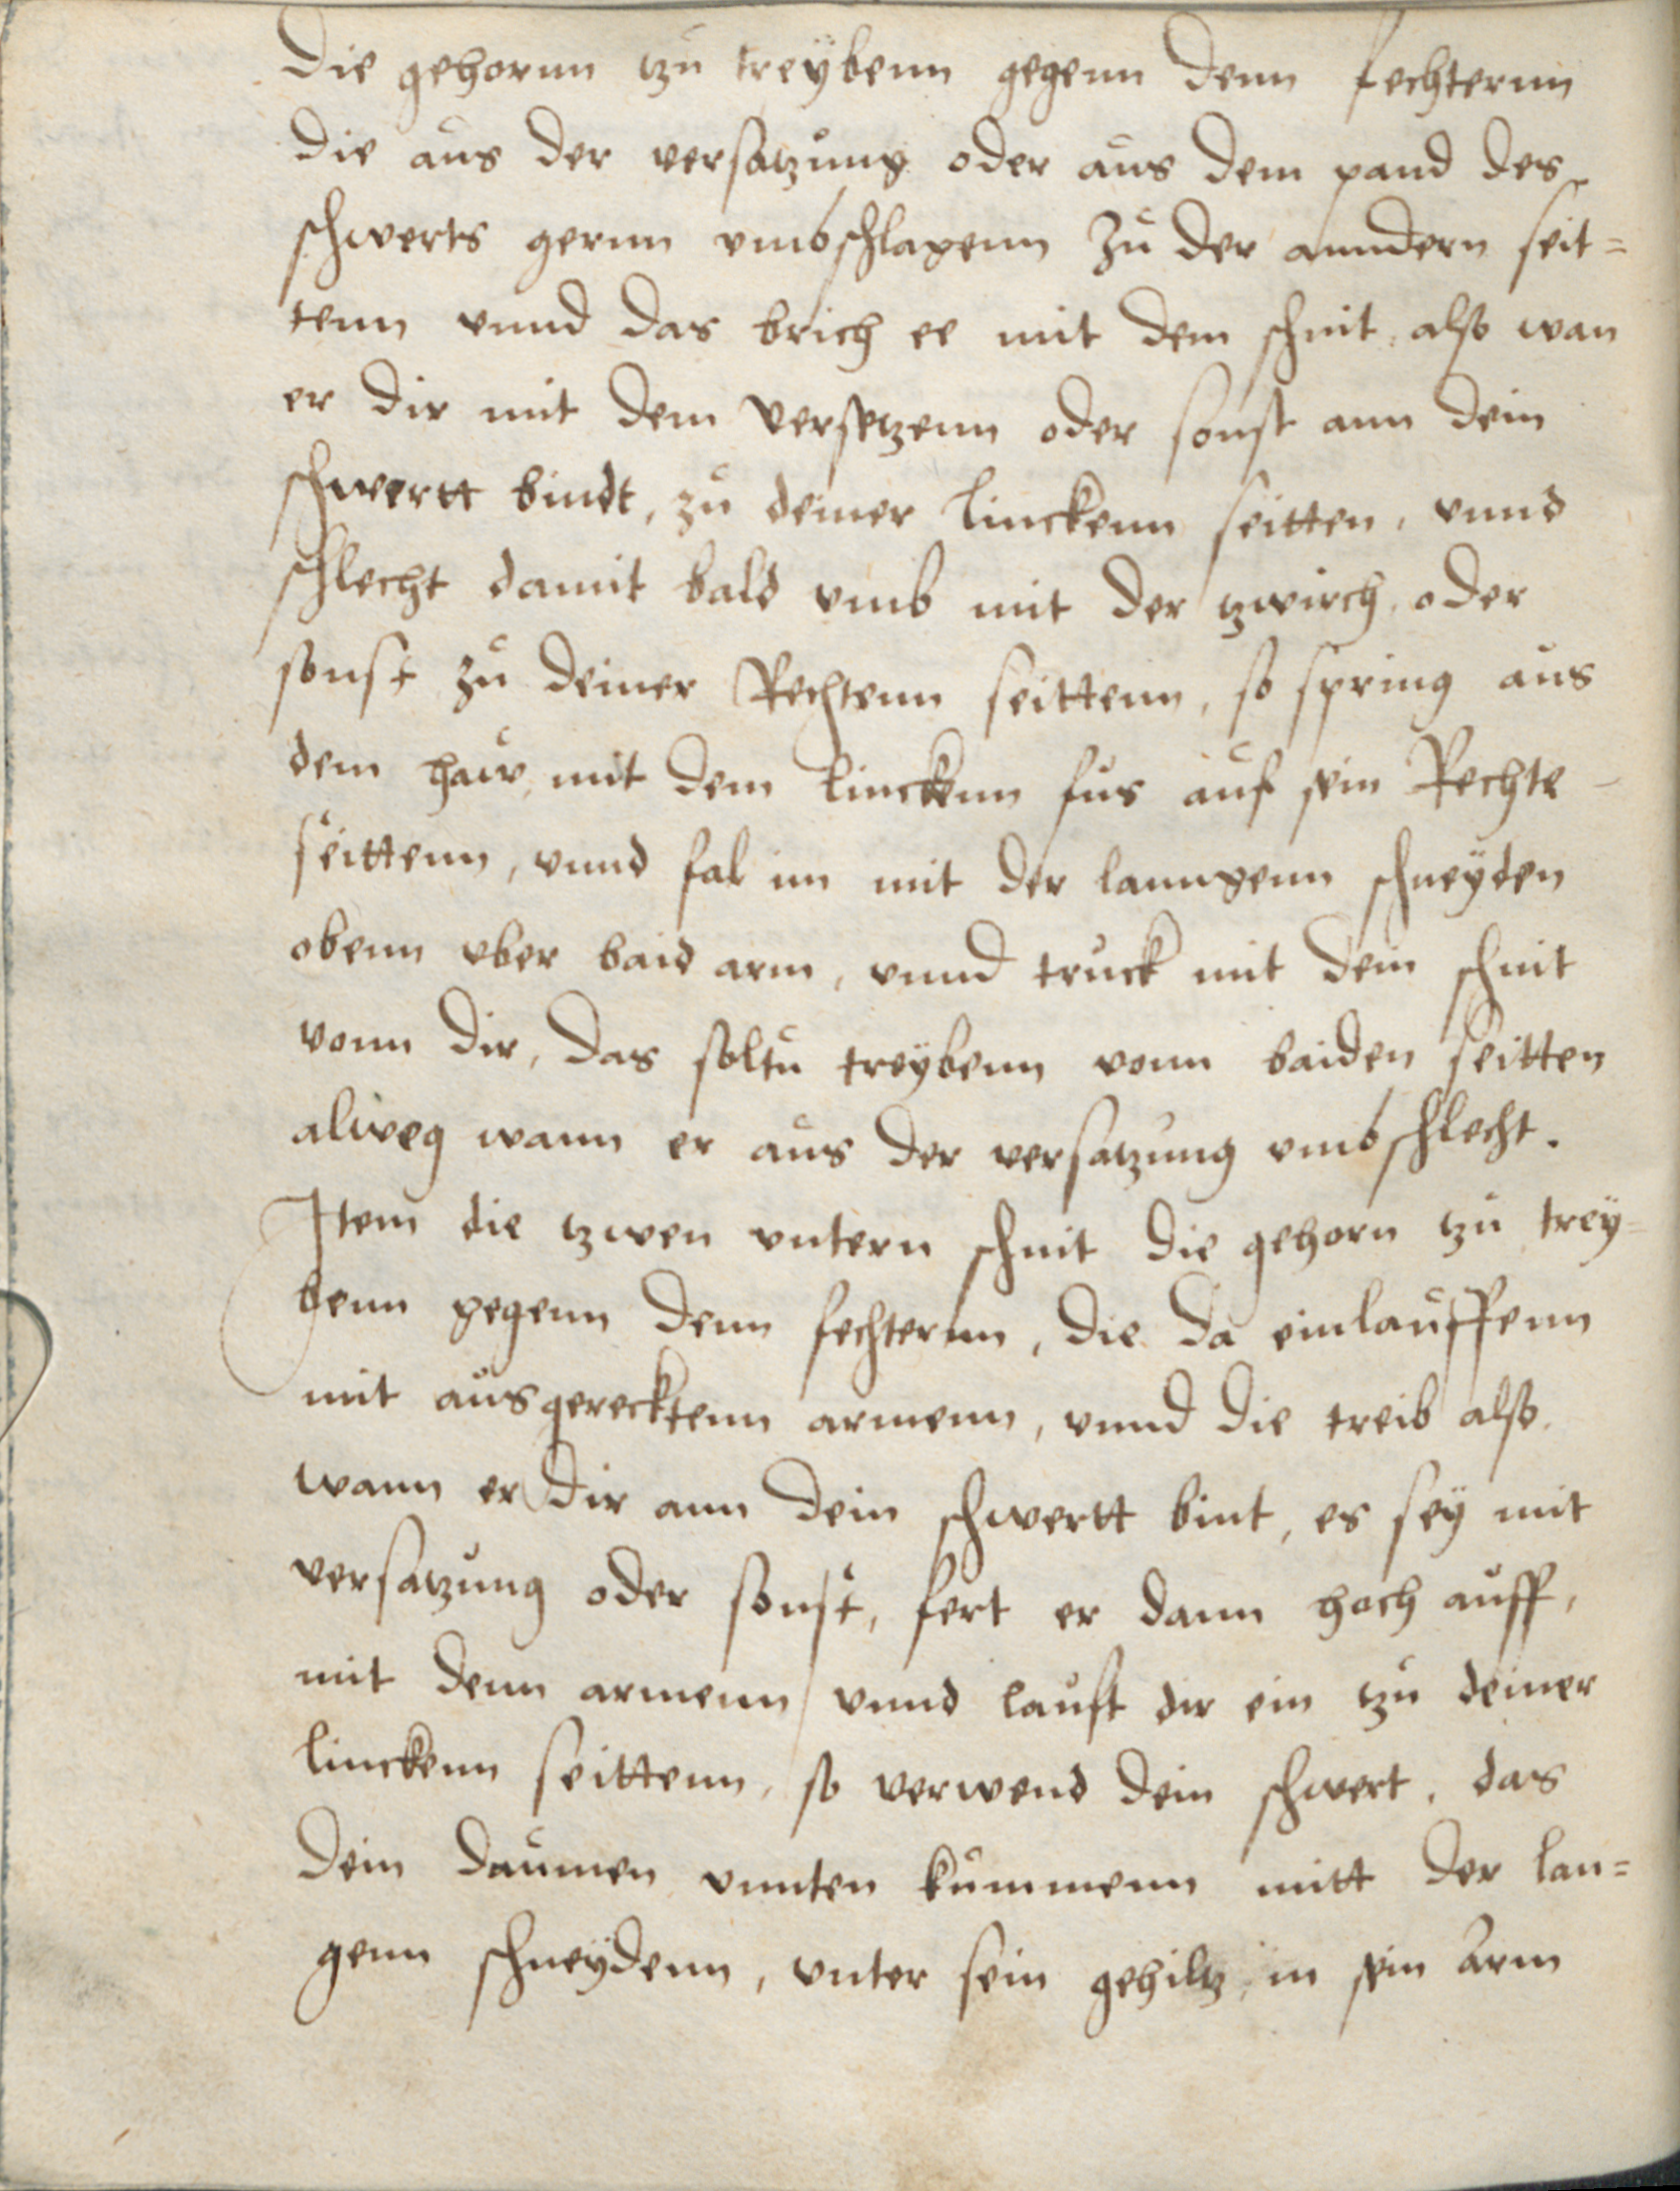 die gehornn tzu treybenn gegenn denn fechternn
die aus der versatzung oder aus dem pand des
schwerts gernn vmbschlagenn zu der anndern seit=
tenn vnnd das brich ee mit dem schnit, also wan
er dir mit dem versetzenn oder sonst ann dein
schwertt bindt, zu deiner linckenn seitten, vnnd
schlecht damit bald vmb mit der tzwirch, oder
sonst zu deiner Rechtenn seittenn, so spring aus
dem haw, mit dem linckenn fus auf sein Rechte
seittenn, vnnd fal im mit der lanngenn schneyden
obenn vber baid arm, vnnd truck mit dem schnit
vonn dir, das soltu treybenn vonn baiden seitten
alweg wann er aus der versatzung vmbschlecht.
Item die tzwen vntern schnit die gehorn tzu trey=
benn gegenn denn fechternn, die da einlauffenn
mit ausgerecktenn armenn, vnnd die treib also,
wann er dir ann dein schwertt bint, es sey mit
versatzung oder sonst, fert er dann hoch auff,
mit denn armenn / vnnd lauft dir ein tzu deiner
linckenn seittenn, so verwend dein schwert, das
dein daumen vnnten kummenn mitt der lan=
genn schneydenn, vnter sein gehiltz, in sein arm